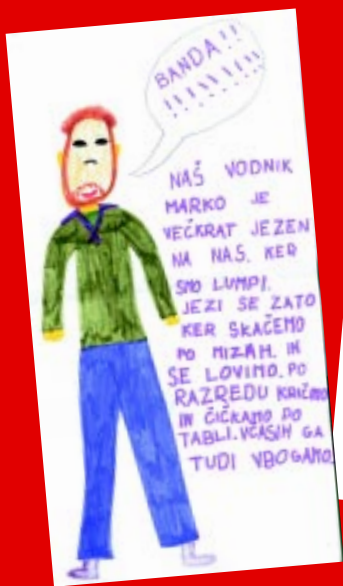 BANDA!!
!!!!!!!!
NAŠ VODNIK
MARKO JE
VEČKRAT JEZEN
NA NAS. KER
SMO LUMPI.
JEZI SE ZATO
KER SKAČEMO
PO MIZAH. IN
SE LOVIMO. PO
RAZREDU KRIČIMO
IN ČIČKAMO PO
TABLI. VČASIH GA
TUDI VBOGAMO.